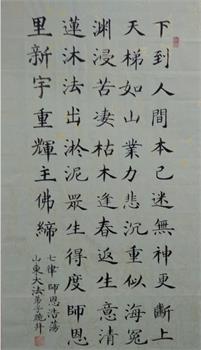 下到人間本已迷無神更斷上
天梯如山業力悲沉重似海冤
淵浸苦凄枯木逢春返生意清
蓮沐法出淤泥眾生得度師恩
里新宇重輝主佛締
七律 師恩浩蕩
山東大法弟子跪拜